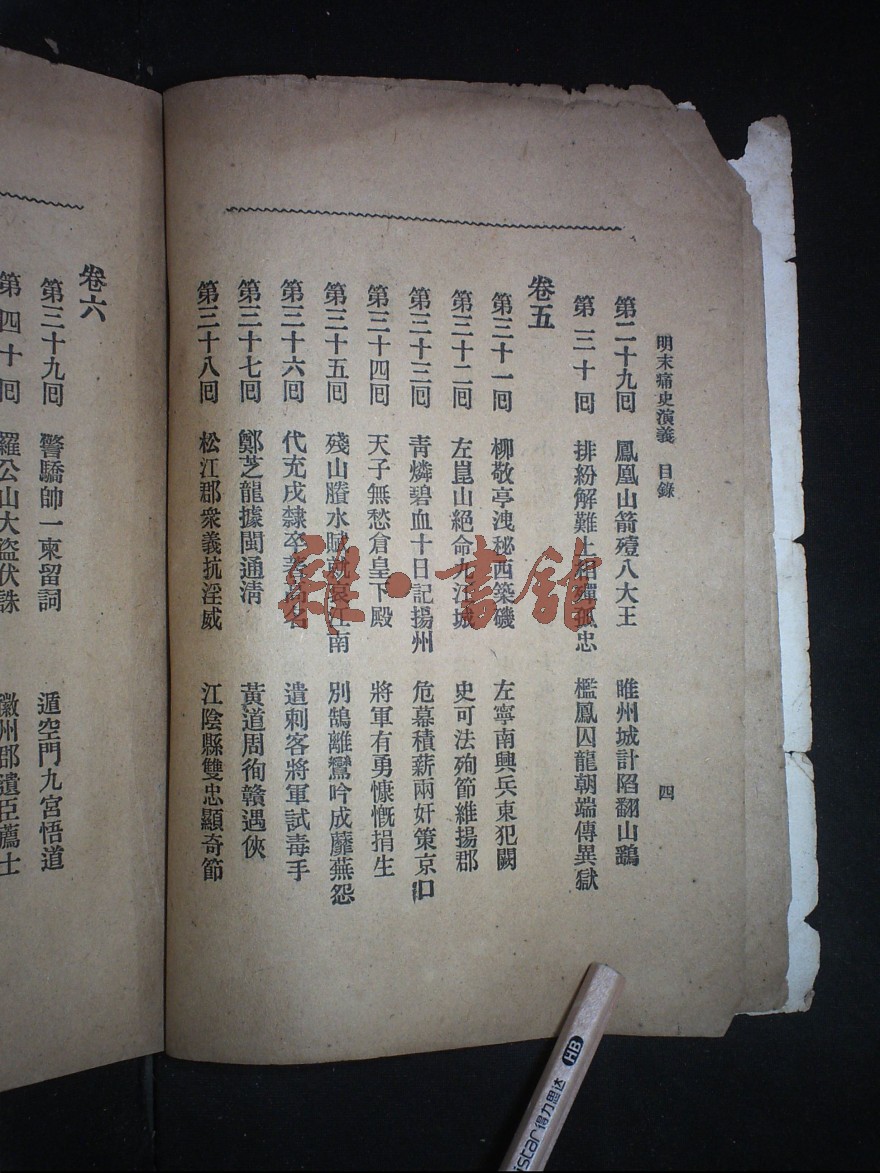 明末痛史演義 目錄 四
第二十九回 鳳凰山箭殪八大王 睢州城計陷翻山鷂
第三十回 排紛解難土 孤忠 檻鳳囚龍朝端傳異獄
卷五
第三十一回 柳敬亭洩秘西築磯 左寧南興兵東犯闕
第三十二回 左崑山絕命九江城 史可法殉節維揚郡
第三十三回 青燐碧血十日記揚州 危幕積薪兩奸策京口
第三十四回 天子無愁倉皇下殿 將軍有勇慷慨捐生
第三十五回 殘山賸水賦就哀江南 別鵠離鸞吟成蘼蕪怨
第三十六回 代充戍隸卒著高名 遣刺客將軍試毒手
第三十七回 鄭芝龍據閩通淸 黃道周徇贛遇俠
第三十八回 松江郡衆義抗淫威 江陰縣雙忠顯奇節
卷六
第三十九回 警驕帥一柬留詞 遁空門九宮悟道
第四十回 羅公山大盜伏誅 徽州郡遺臣薦士
雜·書館
HB
得力思达
istar